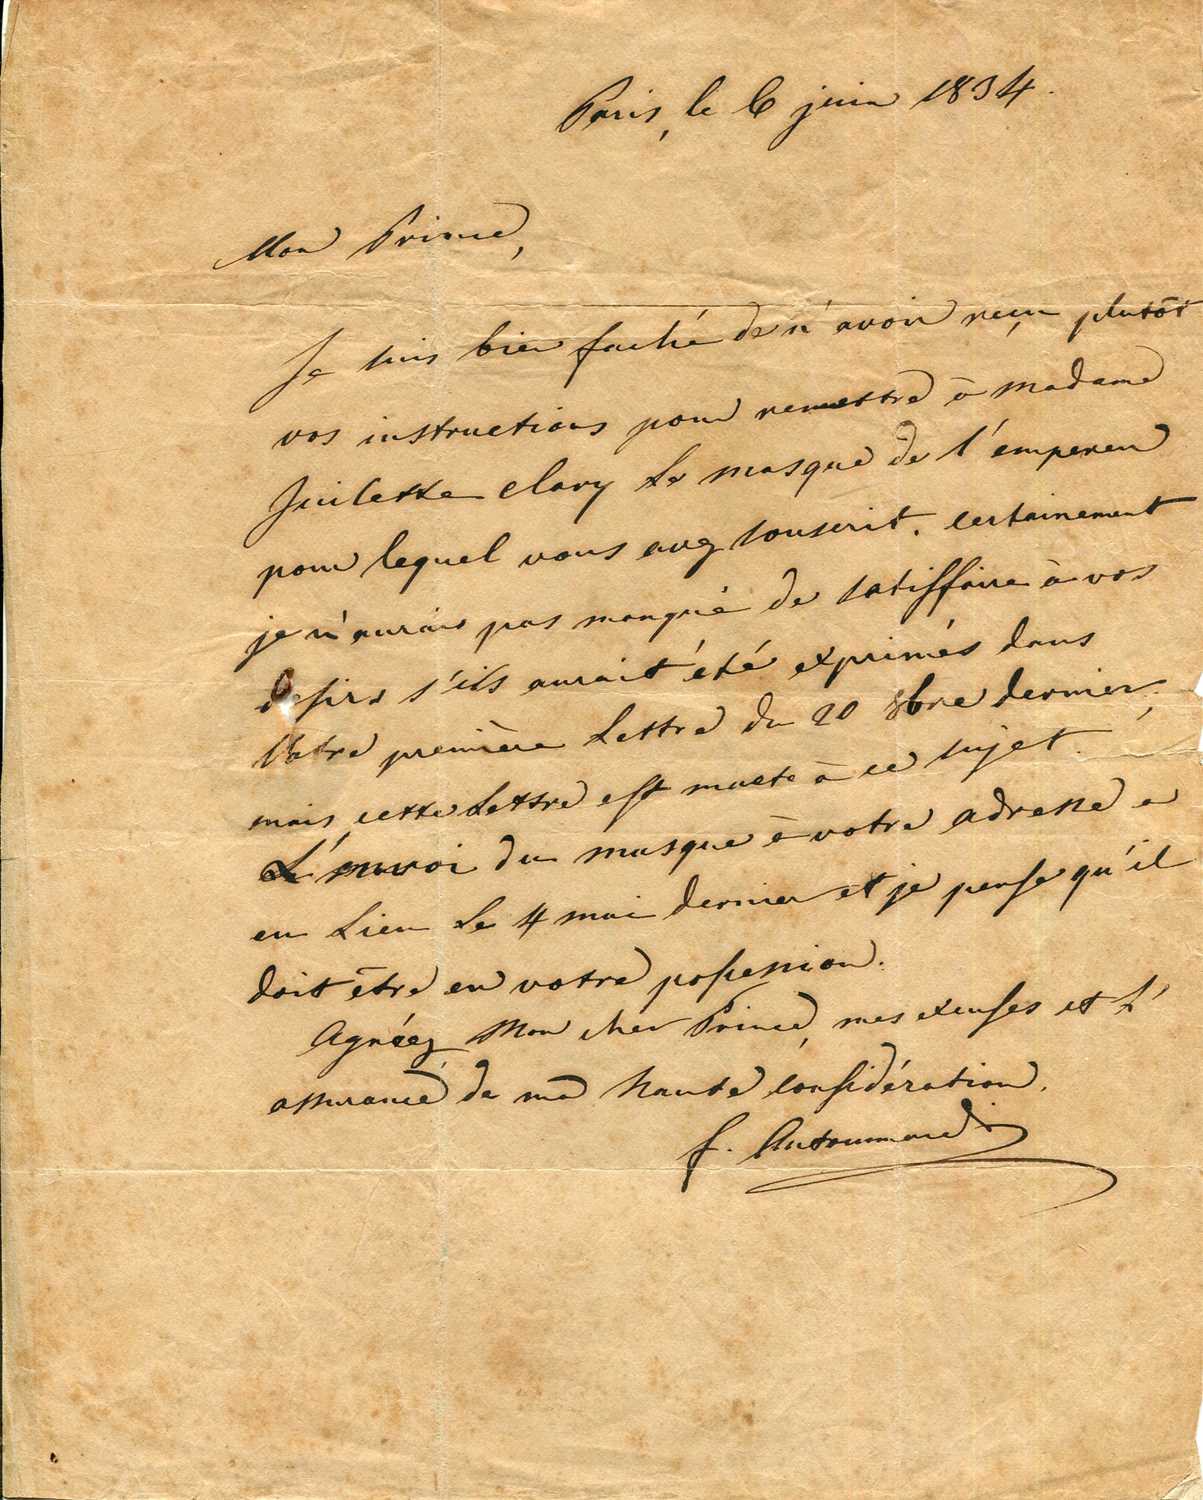 Paris, le 6 juin 1834.
Mon Prince,
Je suis bien faché de n'avoir reçu plutôt
vos instructions pour remettre à madame
Juilette Clary Le masque de l'empereur
pour lequel vous avez souscrit. certainement
je n'aurais pas manqué de satisffaire à vos
desirs s'ils aurait été exprimés dans
Votre première Lettre du 20 8bre dernier,
mais cette Lettre est muete à ce sujet.
L'envoi du masque à votre adresse a
eu Lieu Le 4 mai dernier et je pense qu'il
doit être en votre possession.
Agréez Mon cher Prince, mes excuses et L'
assurance de ma haute considération.
f. Antommarchi